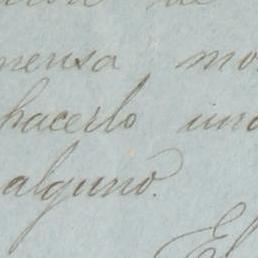 mensa mo
hacerlo una
alguno.
El